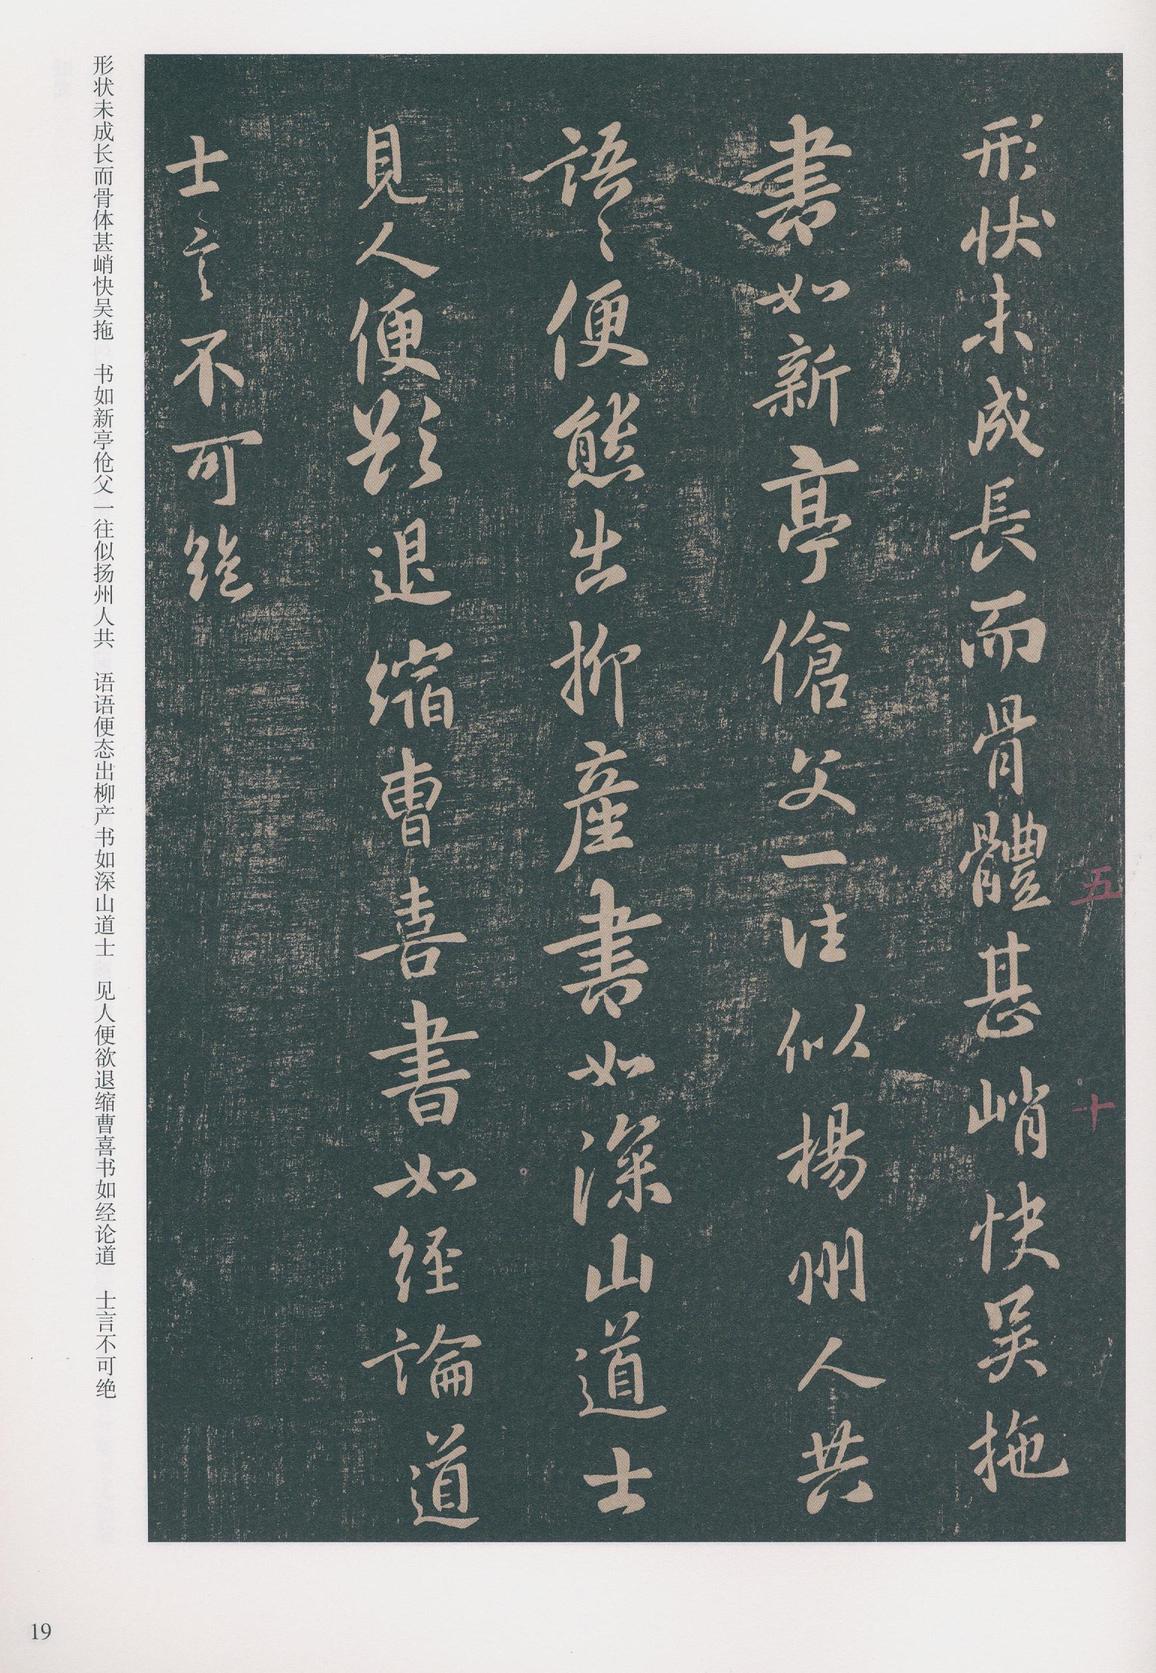 形狀未成長而骨體甚峭快吴拖
書如新亭傖父一往似楊州人共
語〻便態出柳產書如深山道士
見人便欲退縮曹喜書如經論道
士言不可絶
五
十
形状未成长而骨体甚峭快吴拖 书如新亭伧父一往似扬州人共 语语便态出柳产书如深山道士 见人便欲退缩曹喜书如经论道 士言不可绝
19